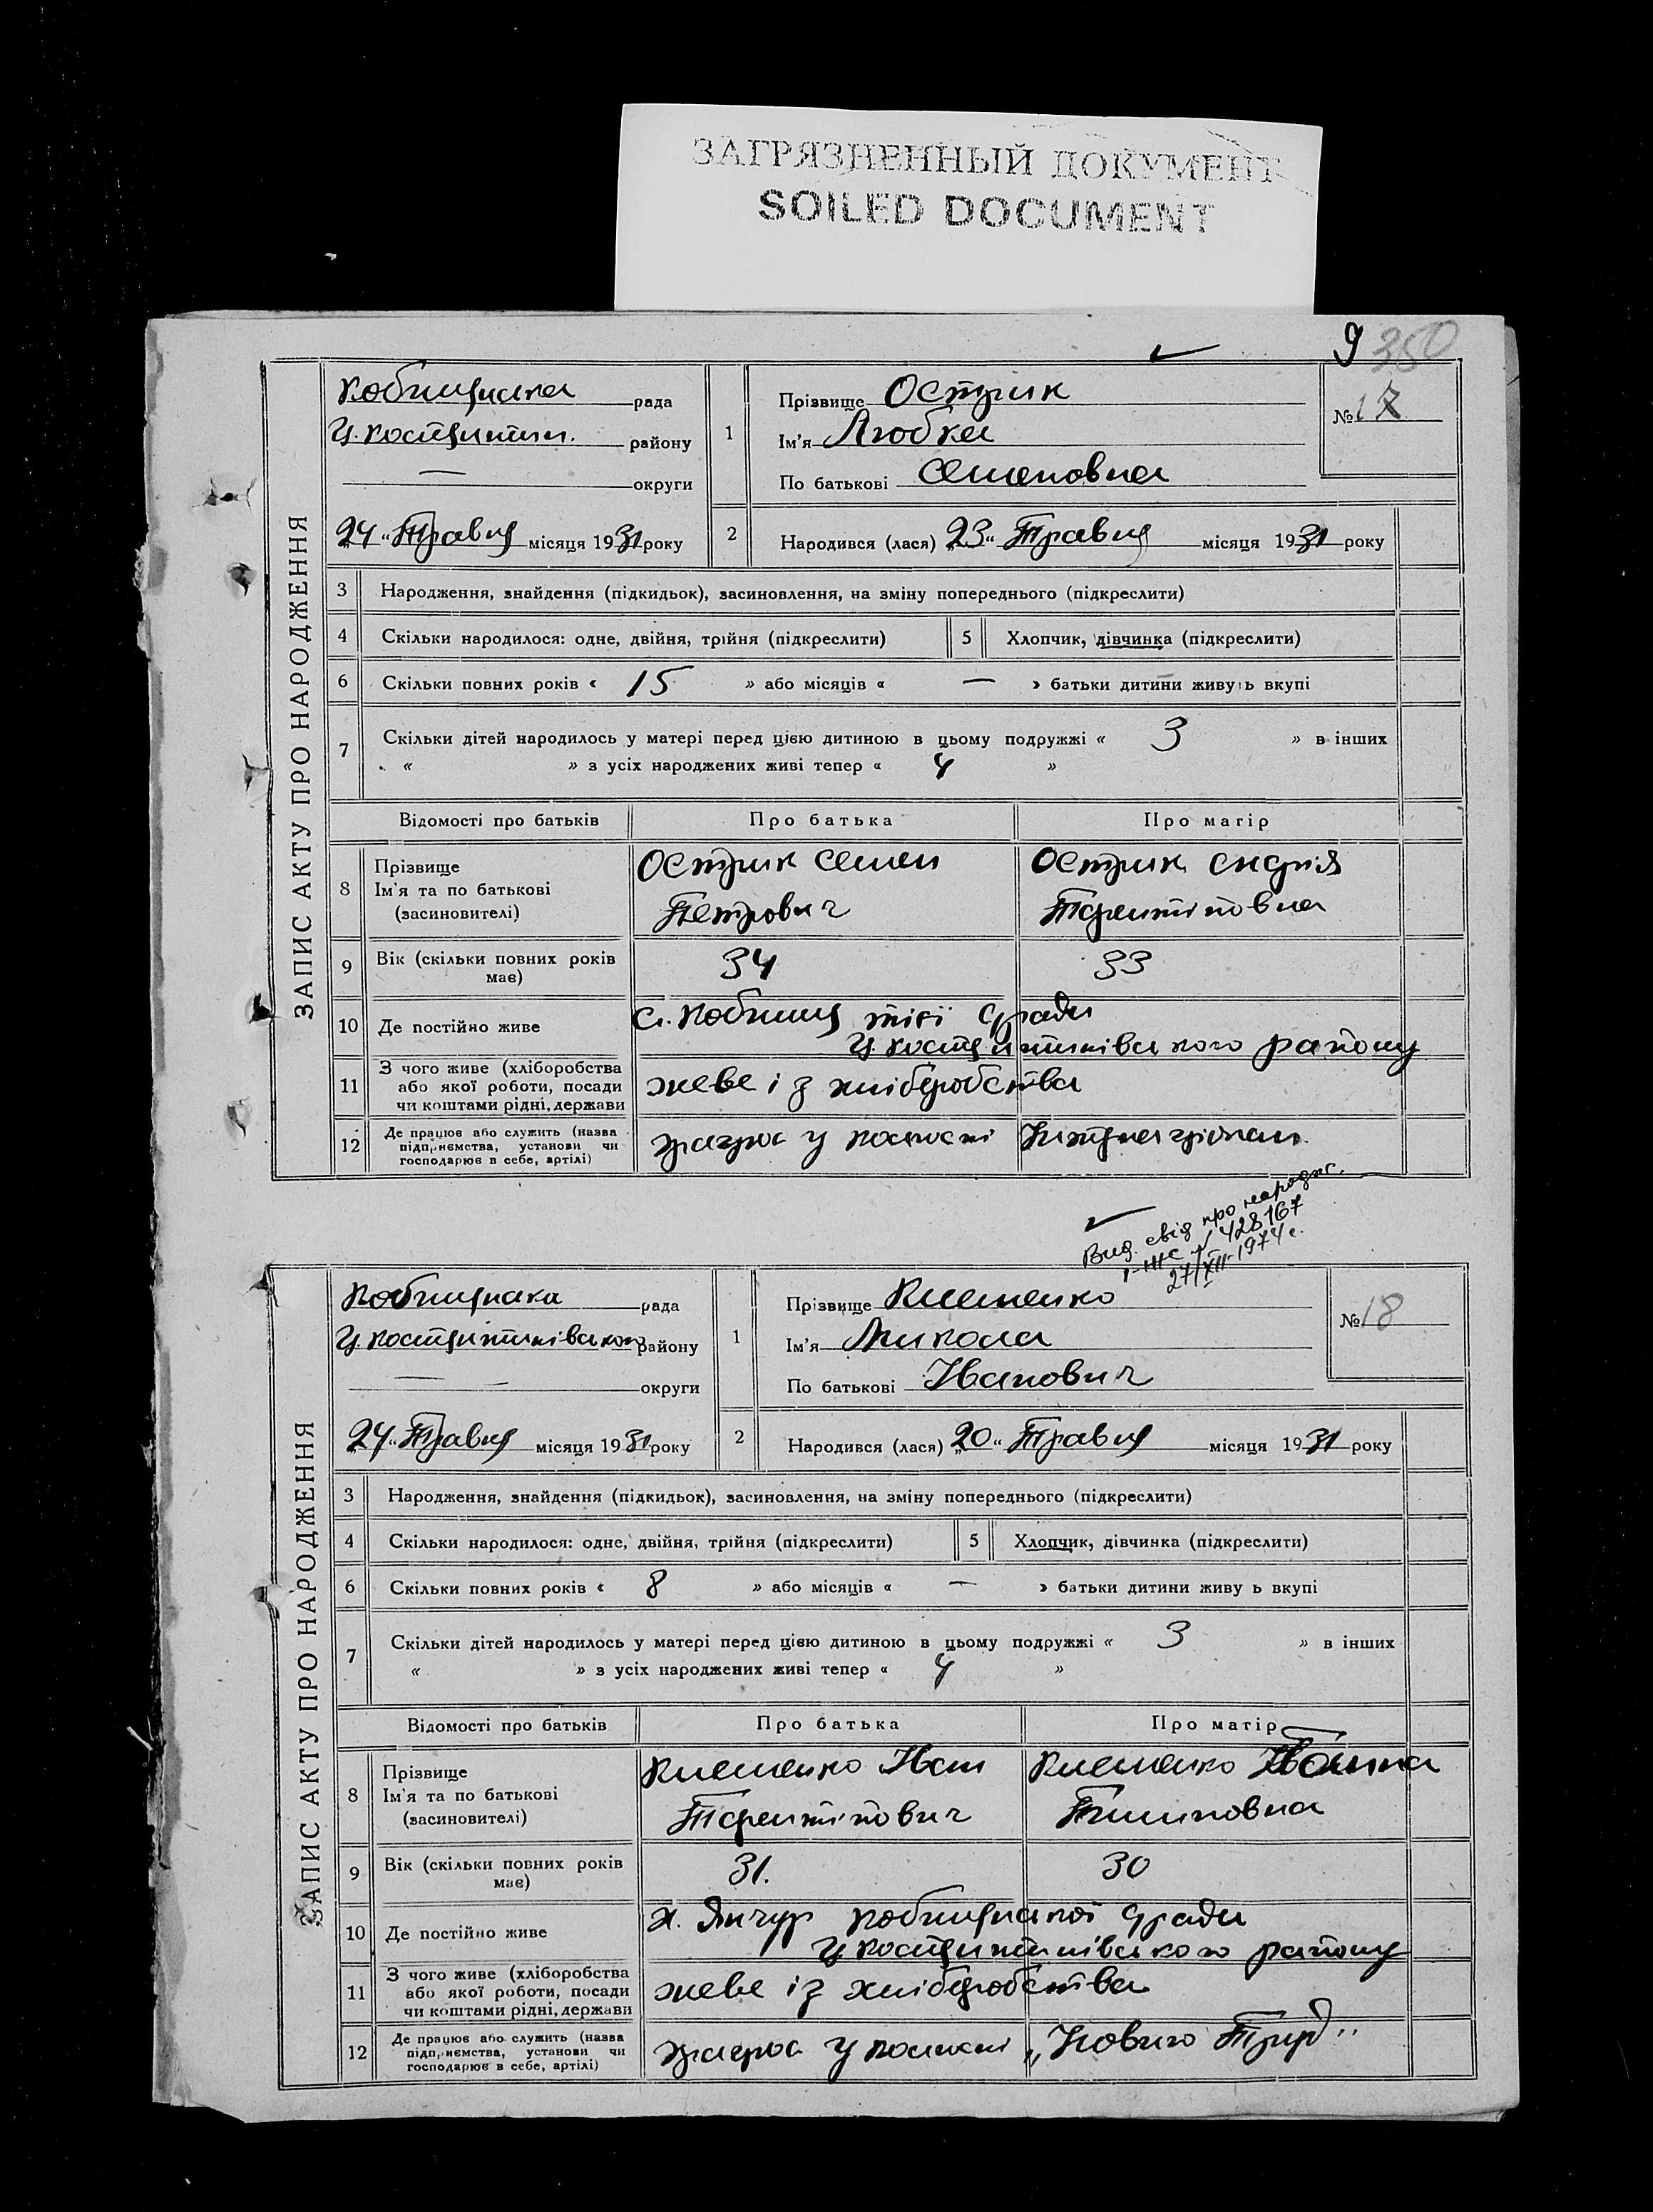 ЗАГРЯЗНЕННЫЙ ДОКУМЕНТ
SOILED DOCUMENT
9 350
ЗАПИС АКТУ ПРО НАРОДЖЕННЯ
рада
району
округи
24 Травня місяця 1931 року
1
Прізвище Острик
Ім'я Любка
По батькові Семеновна
№ 17
2
Народився (лася) „23“ Травня місяця 1931 року
3 Народження, знайдення (підкидьок), засиновлення, на зміну попереднього (підкреслити)
4 Скільки народилося: одне, двійня, трійня (підкреслити) 5 Хлопчик, дівчинка (підкреслити)
6 Скільки повних років « 15 » або місяців « — » батьки дитини живуть вкупі
7 Скільки дітей народилось у матері перед цією дитиною в цьому подружжі « 3 » в інших
« » з усіх народжених живі тепер « 4 »
Відомості про батьків Про батька Про матір
8 Прізвище
Ім'я та по батькові
(засиновителі)
Острик Семен
Петрович
Острик
9 Вік (скільки повних років
має)
34 33
10 Де постійно живе
району
11 З чого живе (хліборобства
або якої роботи, посади
чи коштами рідні, держави
живе із хліборобства
12 Де працює або служить (назва
підприємства, установи чи
господарює в себе, артілі)
Вид. свід про народж.
428167
27/XII-1974 г.
ЗАПИС АКТУ ПРО НАРОДЖЕННЯ
рада
району
округи
„24“ Травня місяця 1931 року
1
Прізвище Клеменко
Ім'я Микола
По батькові Іванович
№ 18
2
Народився (лася) „20“ Травня місяця 1931 року
3 Народження, знайдення (підкидьок), засиновлення, на зміну попереднього (підкреслити)
4 Скільки народилося: одне, двійня, трійня (підкреслити) 5 Хлопчик, дівчинка (підкреслити)
6 Скільки повних років « 8 » або місяців « — » батьки дитини живу ь вкупі
7 Скільки дітей народилось у матері перед цією дитиною в цьому подружжі « 3 » в інших
« » з усіх народжених живі тепер « 4 »
Відомості про батьків Про батька Про матір
8 Прізвище
Ім'я та по батькові
(засиновителі)
Клеменко Іван
Терентійович
Клеменко
9 Вік (скільки повних років
має)
31. 30
10 Де постійно живе
х. Янчур
району
11 З чого живе (хліборобства
або якої роботи, посади
чи коштами рідні, держави
живе із хліборобства
12 Де працює або служить (назва
підприємства, установи чи
господарює в себе, артілі)